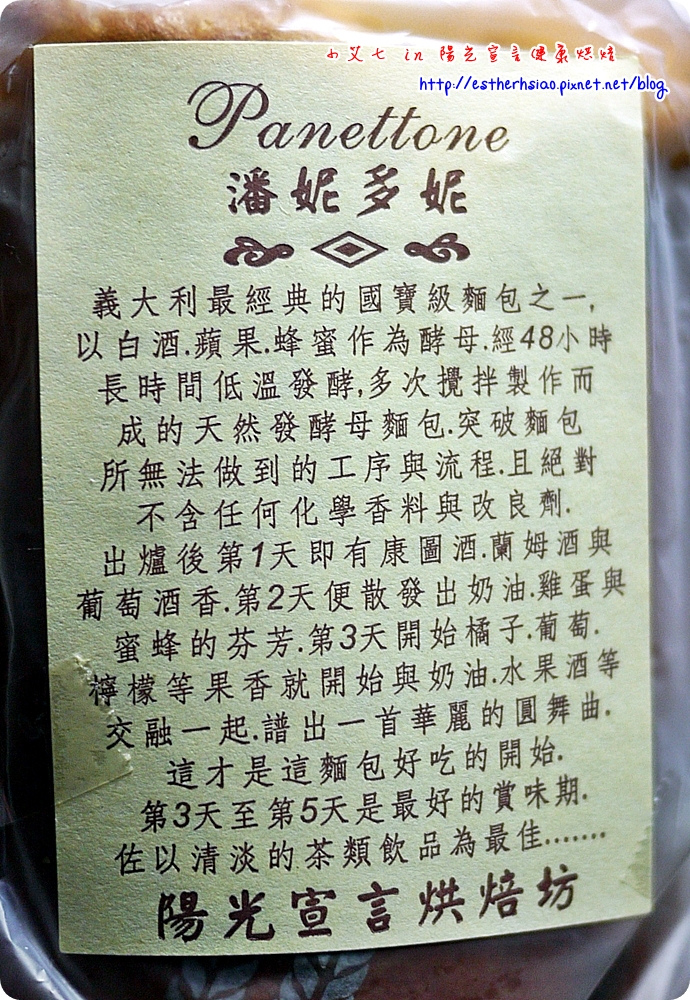 小艾七 in 陽光宣言健康烘焙
http://estherhsiao.pixnet.net/blog
Panettone
潘妮多妮
義大利最經典的國寶級麵包之一,
以白酒.蘋果.蜂蜜作為酵母.經48小時
長時間低溫發酵,多次攪拌製作而
成的天然發酵母麵包.突破麵包
所無法做到的工序與流程.且絕對
不含任何化學香料與改良劑.
出爐後第1天即有康圖酒.蘭姆酒與
葡萄酒香.第2天便散發出奶油.雞蛋與
蜜蜂的芬芳.第3天開始橘子.葡萄.
檸檬等果香就開始與奶油.水果酒等
交融一起.譜出一首華麗的圓舞曲.
這才是這麵包好吃的開始.
第3天至第5天是最好的賞味期.
佐以清淡的茶類飲品為最佳.......
陽光宣言烘焙坊